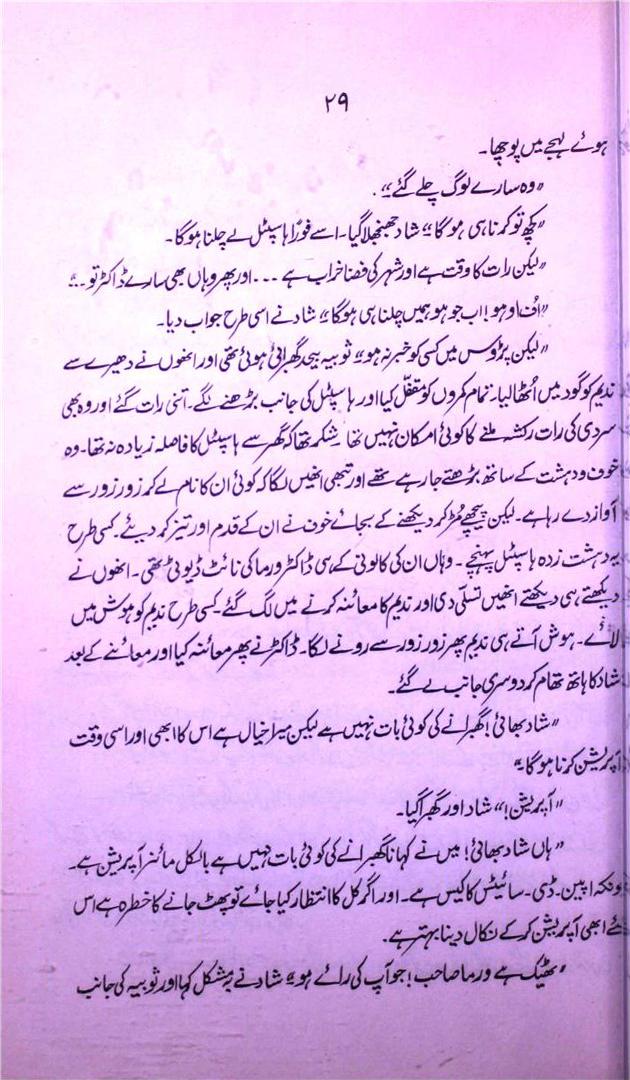 ۲۹
ہوئے لہجے میں پوچھا۔
”وہ سارے لوگ چلے گئے“۔
”کچھ تو کرنا ہی ہوگا“ شاد جھنجھلا گیا۔ اسے فوراً ہاسپٹل لے چلنا ہوگا۔
”لیکن رات کا وقت ہے اور شہر کی فضا خراب ہے ۔۔۔ اور پھر وہاں بھی سارے ڈاکٹر تو ۔۔“
”اُف اوہو! اب جو ہو ہمیں چلنا ہی ہوگا“ شاد نے اسی طرح جواب دیا۔
”لیکن پڑوس میں کسی کو خبر نہ ہو“ ثوبیہ بیحد گھبرائی ہوئی تھی اور انھوں نے دھیرے سے
ندیم کو گود میں اُٹھا لیا۔ تمام کمروں کو مقفّل کیا اور ہاسپٹل کی جانب بڑھنے لگے۔ اتنی رات گئے اور وہ بھی
سردی کی رات رکشہ ملنے کا کوئی امکان نہیں تھا شکر تھا کہ گھر سے ہاسپٹل کا فاصلہ زیادہ نہ تھا۔ وہ
خوف و دہشت کے ساتھ بڑھتے جا رہے تھے اور تبھی انھیں لگا کہ کوئی ان کا نام لے کر زور زور سے
آواز دے رہا ہے۔ لیکن پیچھے مُڑ کر دیکھنے کے بجائے خوف نے ان کے قدم اور تیز کر دیئے۔ کسی طرح
یہ دہشت زدہ ہاسپٹل پہنچے۔ وہاں ان کی کالونی کے ہی ڈاکٹر ورما کی نائٹ ڈیوٹی تھی۔ انھوں نے
دیکھتے ہی دیکھتے انھیں تسلّی دی اور ندیم کا معائنہ کرنے میں لگ گئے۔ کسی طرح ندیم کو ہوش میں
لائے۔ ہوش آتے ہی ندیم پھر زور زور سے رونے لگا۔ ڈاکٹر نے پھر معائنہ کیا اور معائنے کے بعد
شاد کا ہاتھ تھام کر دوسری جانب لے گئے۔
”شاد بھائی! گھبرانے کی کوئی بات نہیں ہے لیکن میرا خیال ہے اس کا ابھی اور اسی وقت
آپریشن کرنا ہوگا“
”آپریشن!“ شاد اور گھبرا گیا۔
”ہاں شاد بھائی! میں نے کہا نا گھبرانے کی کوئی بات نہیں ہے بالکل مائنر آپریشن ہے۔
اپین۔ ڈی۔ سائیٹس کا کیس ہے۔ اور اگر کل کا انتظار کیا جائے تو پھٹ جانے کا خطرہ ہے اس
ابھی آپریشن کر کے نکال دینا بہتر ہے۔
”ٹھیک ہے ورما صاحب! جو آپ کی رائے ہو“ شاد نے بہ مشکل کہا اور ثوبیہ کی جانب